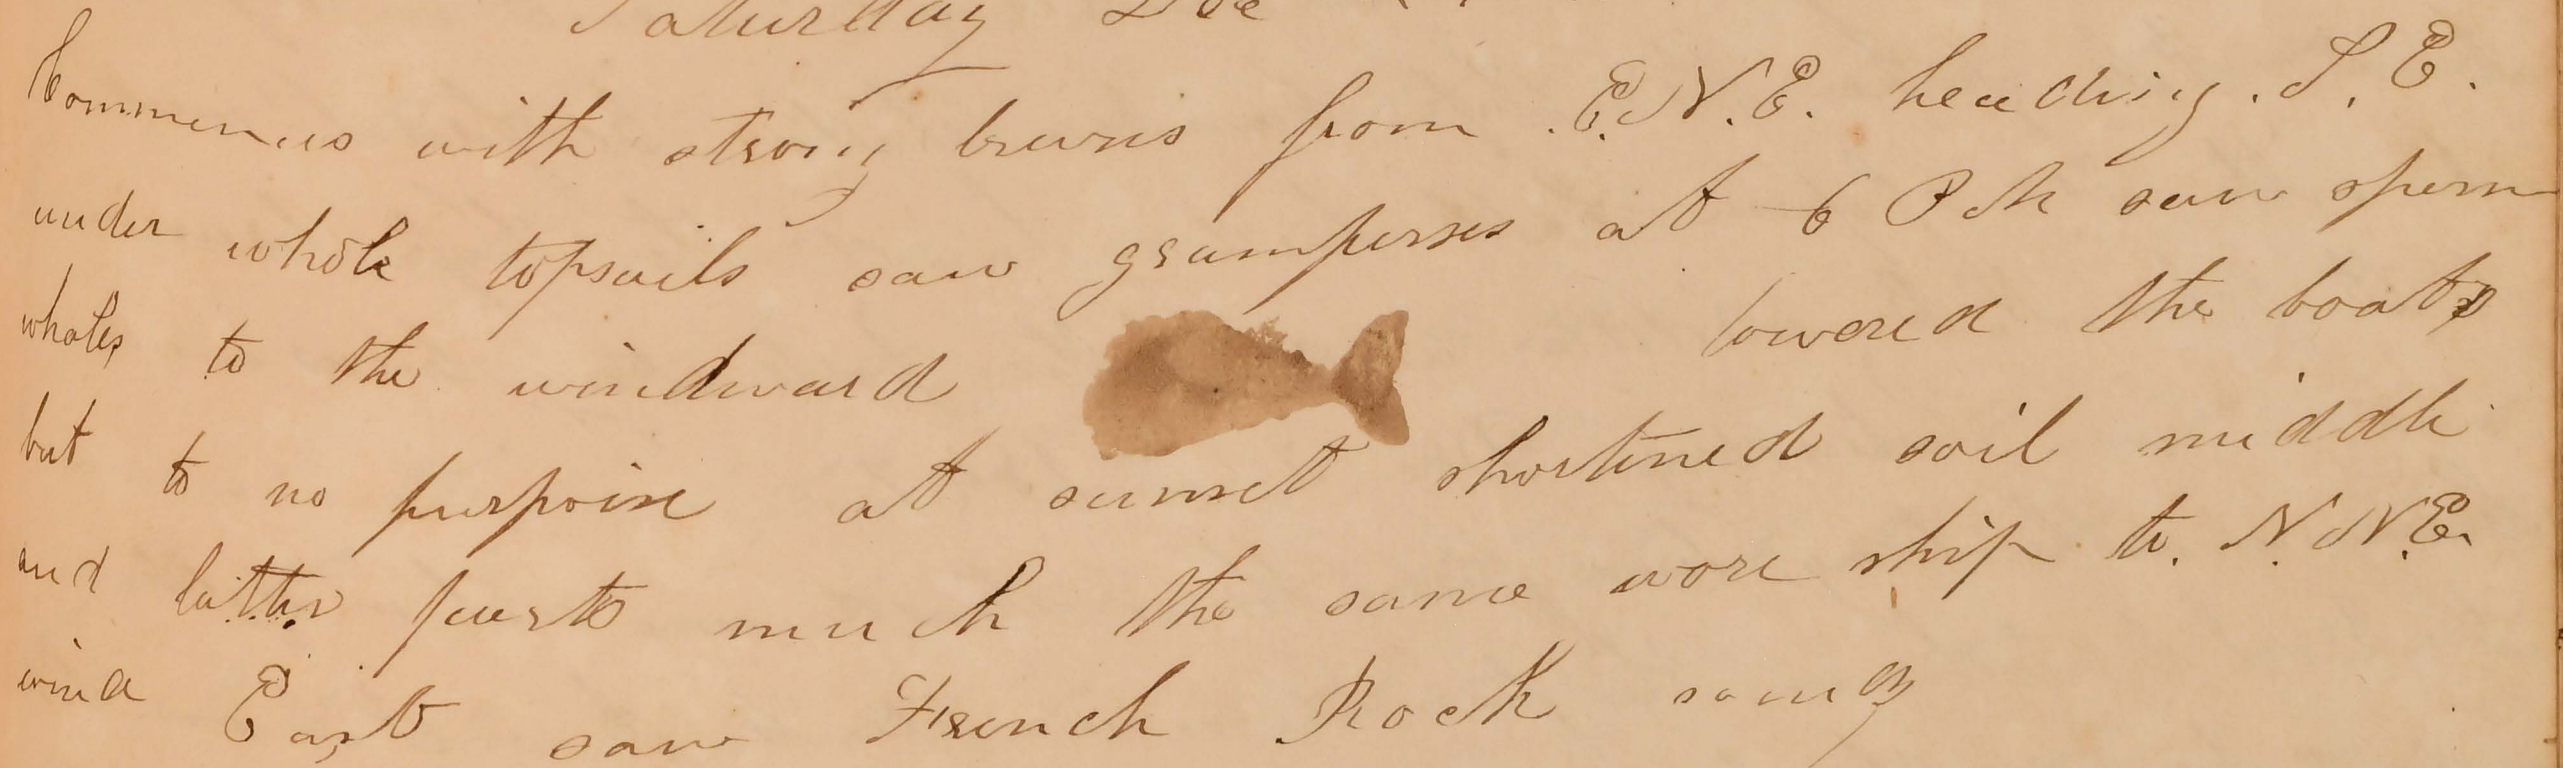 Saturday Dec
Commences with strong breezes from E.N.E. heading. S. E.
under whole topsails saw grampusses at 6 P M saw sperm
whales to the windward lowered the boats
but to no purpoise at sunset shortened sail middle
and latter parts much the same wore ship to. N. N.E.
wind East saw French Rock